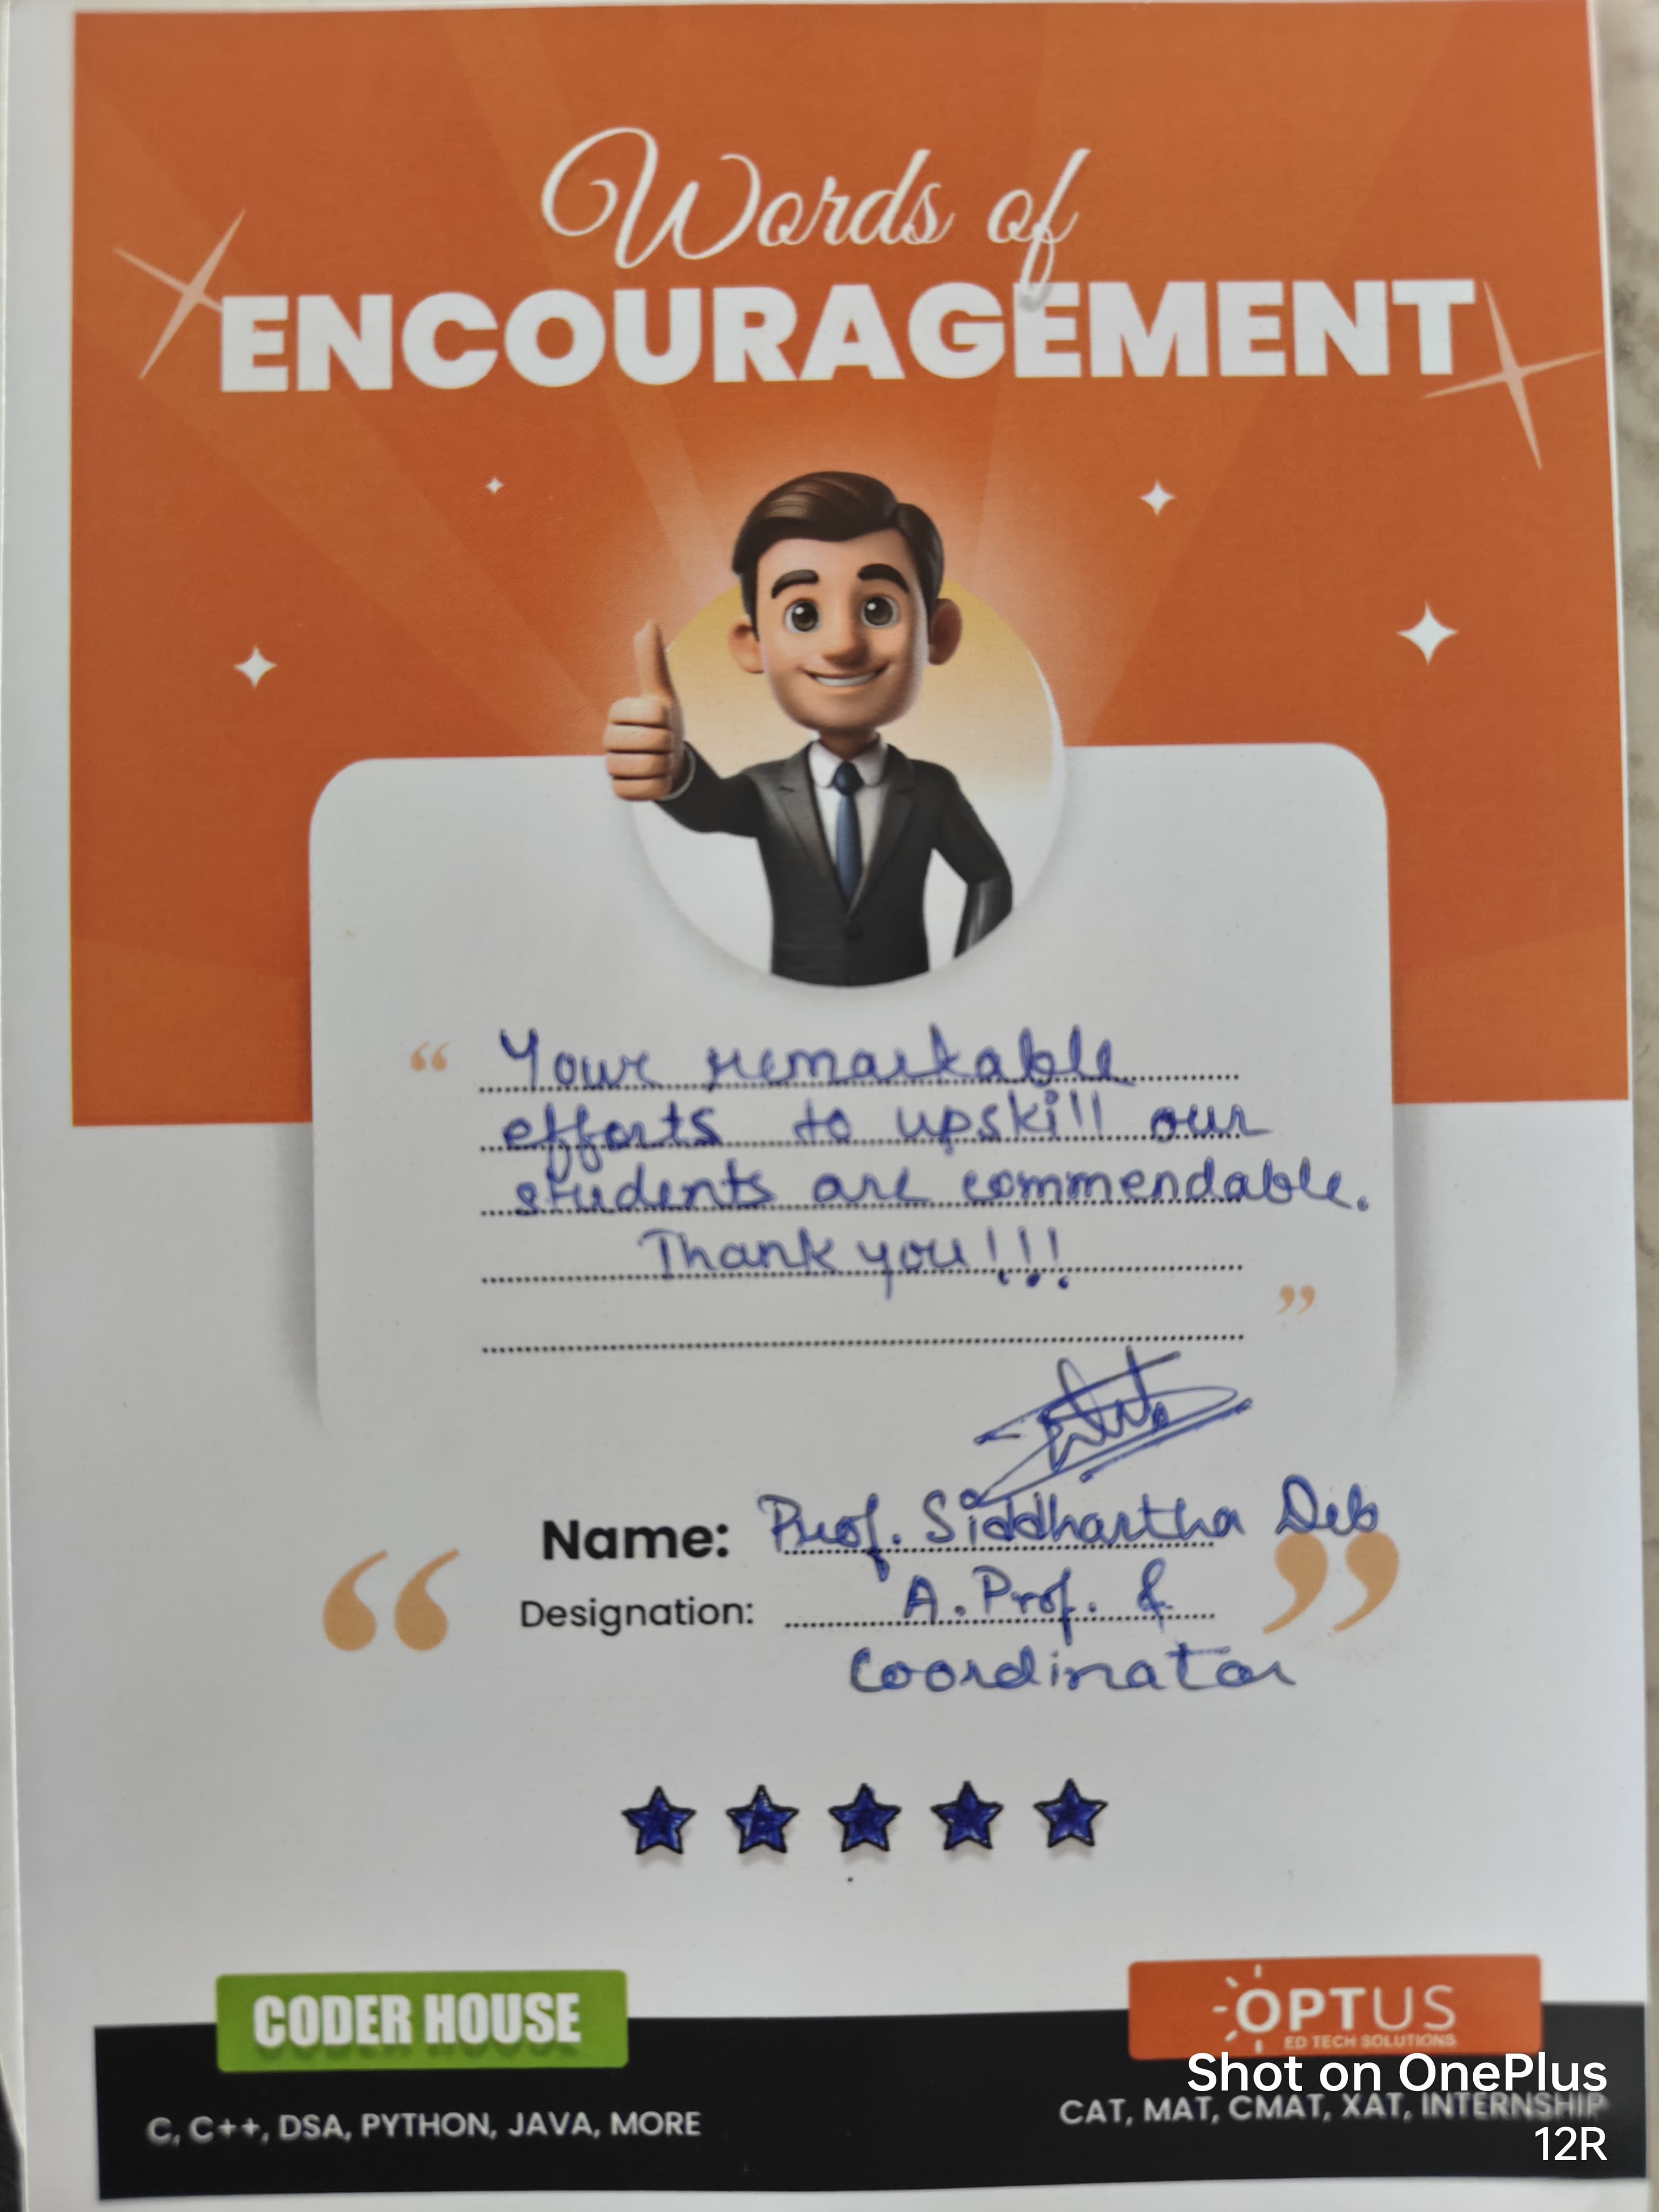 Words of
ENCOURAGEMENT
“ Your remarkable
efforts to upskill our
students are commendable.
Thank you!!!
”
Name: Prof. Siddhartha Deb
Designation: A. Prof. &
Coordinator
“ ”
CODER HOUSE
C, C++, DSA, PYTHON, JAVA, MORE
OPTUS
ED TECH SOLUTIONS
CAT, MAT, CMAT, XAT, INTERNSHIP
Shot on OnePlus
12R